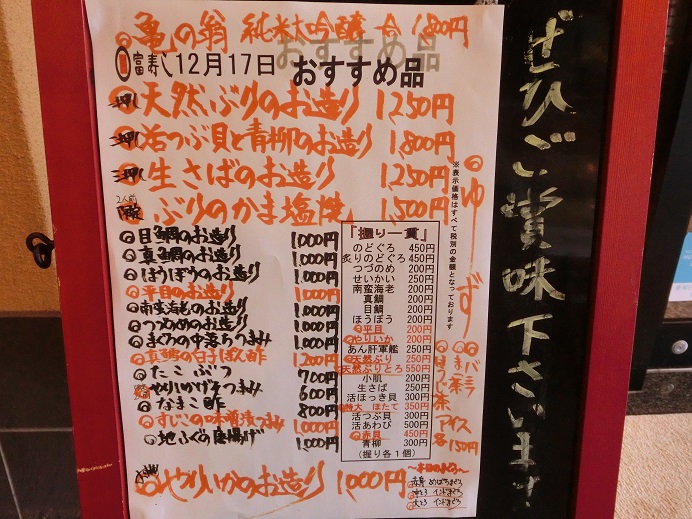 亀の翁 純米大吟醸 一合 1,800円
富寿し 12月17日 おすすめ品
天然ぶりのお造り 1,250円
活つぶ貝と青柳のお造り 1,800円
生さばのお造り 1,250円
2人前 ぶりのかま塩焼 1,500円
目鯛のお造り 1,000円
真鯛のお造り 1,000円
ほうぼうのお造り 1,000円
平目のお造り 1,000円
南蛮海老のお造り 1,000円
つづのめのお造り 1,000円
まぐろの中落ちつまみ 1,000円
真鱈の白子ぽん酢 1,200円
たこぶつ 700円
やりいかげそつまみ 600円
なまこ酢 800円
すじこの味噌漬つまみ 1,000円
地ふぐ唐揚げ 1,000円
やりいかのお造り 1,000円
「握り一貫」
のどぐろ 450円
炙りのどぐろ 450円
つづのめ 200円
せいかい 250円
南蛮海老 200円
真鯛 200円
目鯛 200円
ほうぼう 200円
平目 200円
やりいか 200円
あん肝軍艦 250円
天然ぶり 250円
天然ぶりとろ 550円
小肌 200円
生さば 250円
活ほっき貝 300円
特大 ほたて 350円
活つぶ貝 300円
活あわび 500円
赤貝 450円
青柳 300円
(握り各1個)
※表示価格はすべて税別の金額となっております
ゆず
バニラ
まっ茶
ほうじ茶
アイス
各150円
~本日のまぐろ~
赤身 めばちまぐろ
中とろ インドまぐろ
大とろ インドまぐろ
ぜひご賞味下さいませ